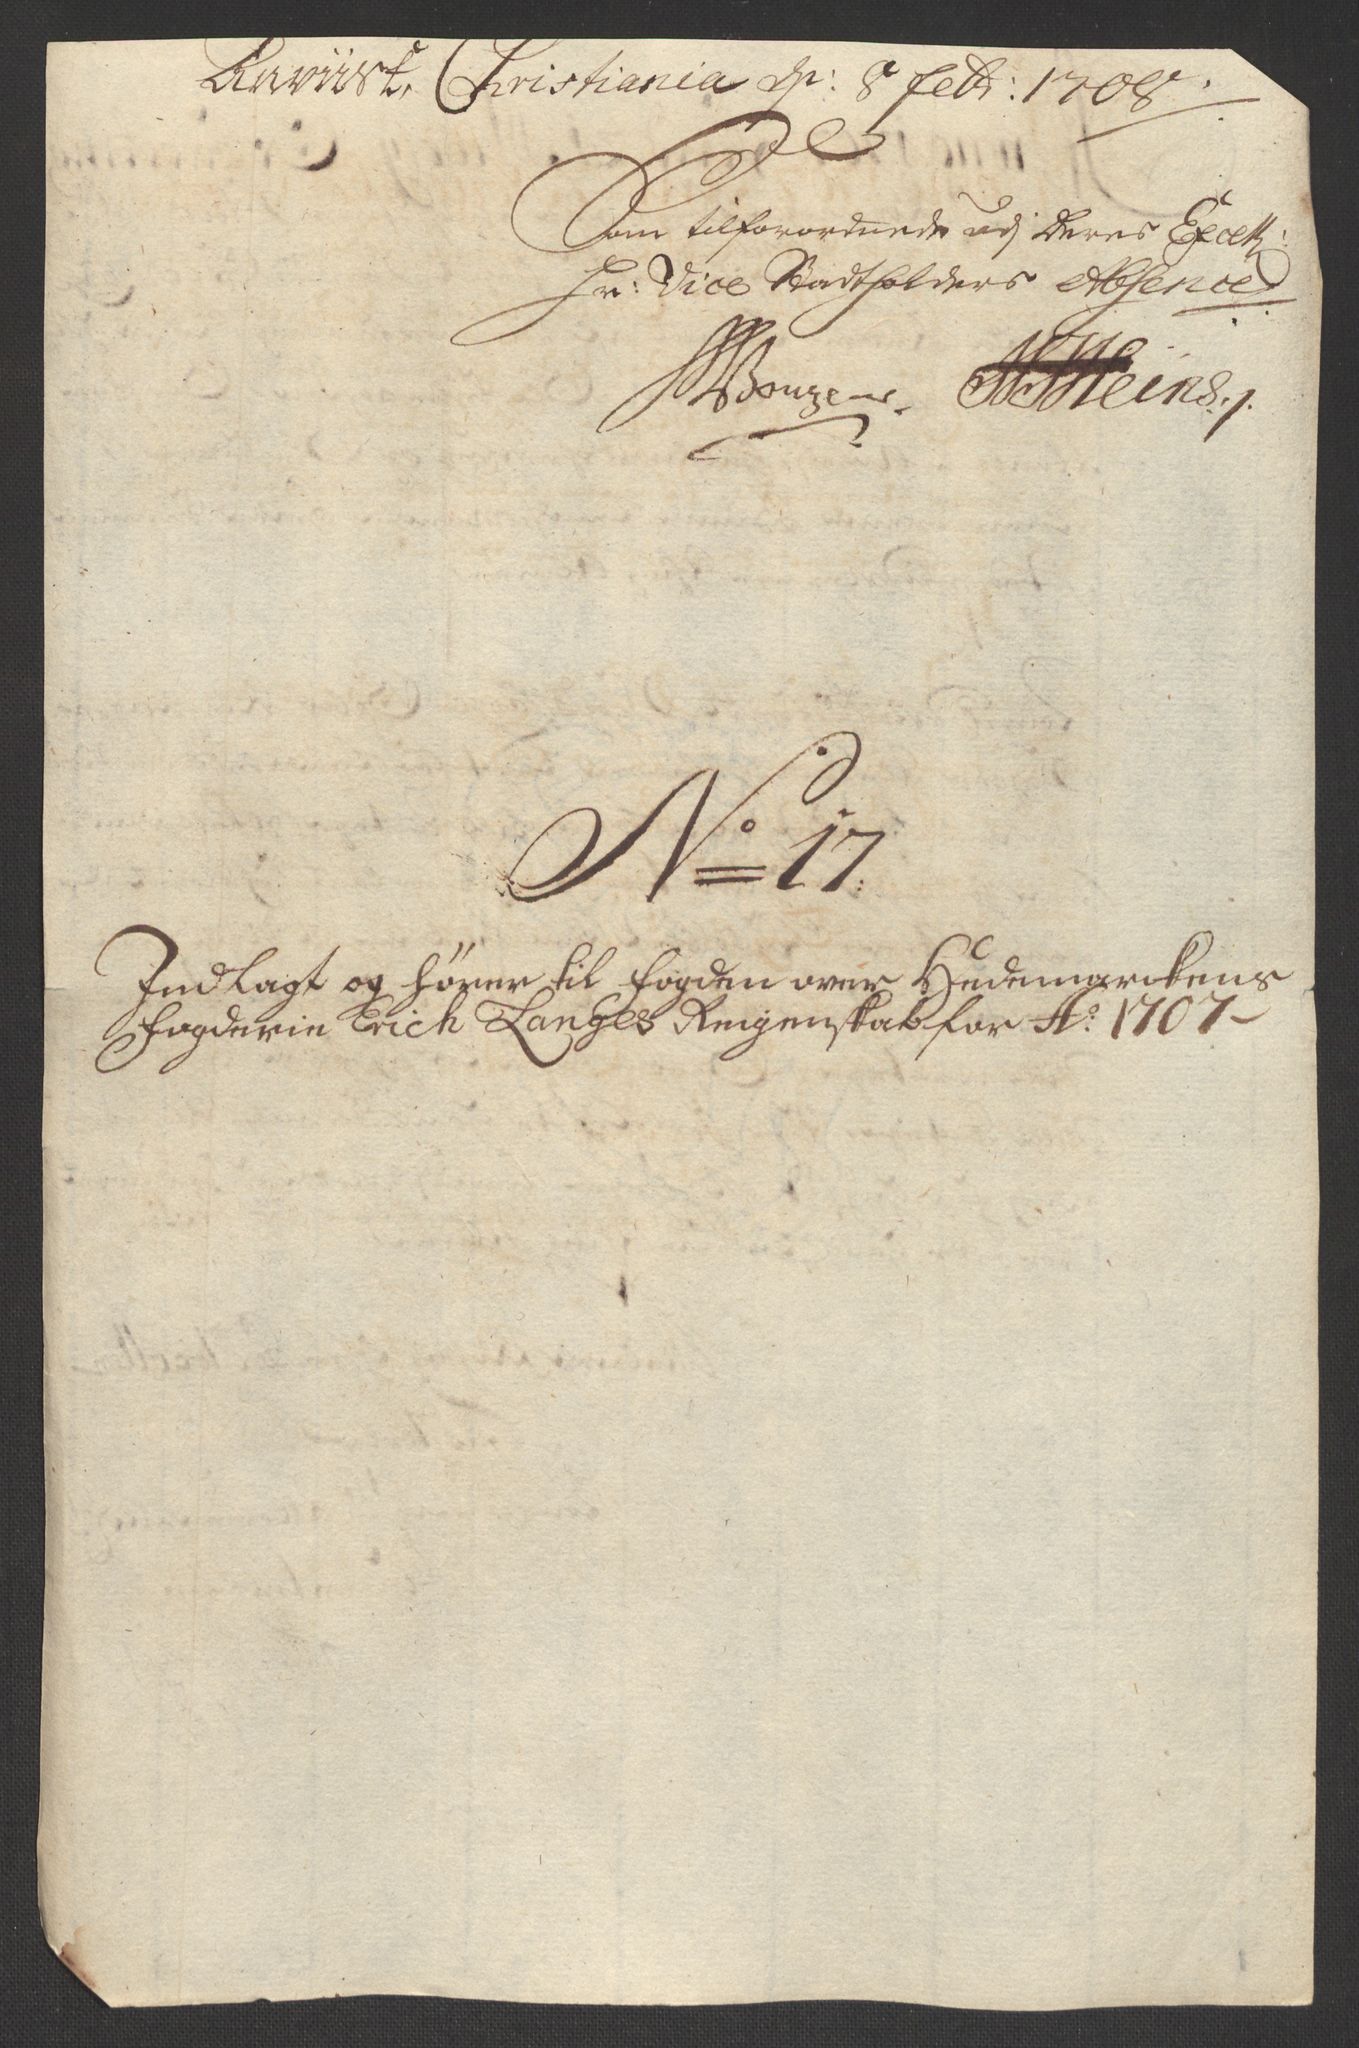 Reviist, Christiania d: 8 Feb: 1708.
Som tilforordnede udj deres Excell:
Hr: Vice Stadtholders Absence
No 17.
Indlagt og hører til fogden over Hedemarckens
fogderie Erich Langes Regenskab for Ao: 1707